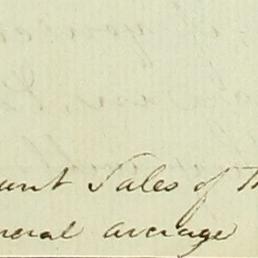 unt Sales of th
neral average